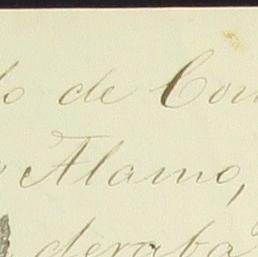 de Con
Alamo,
deraba